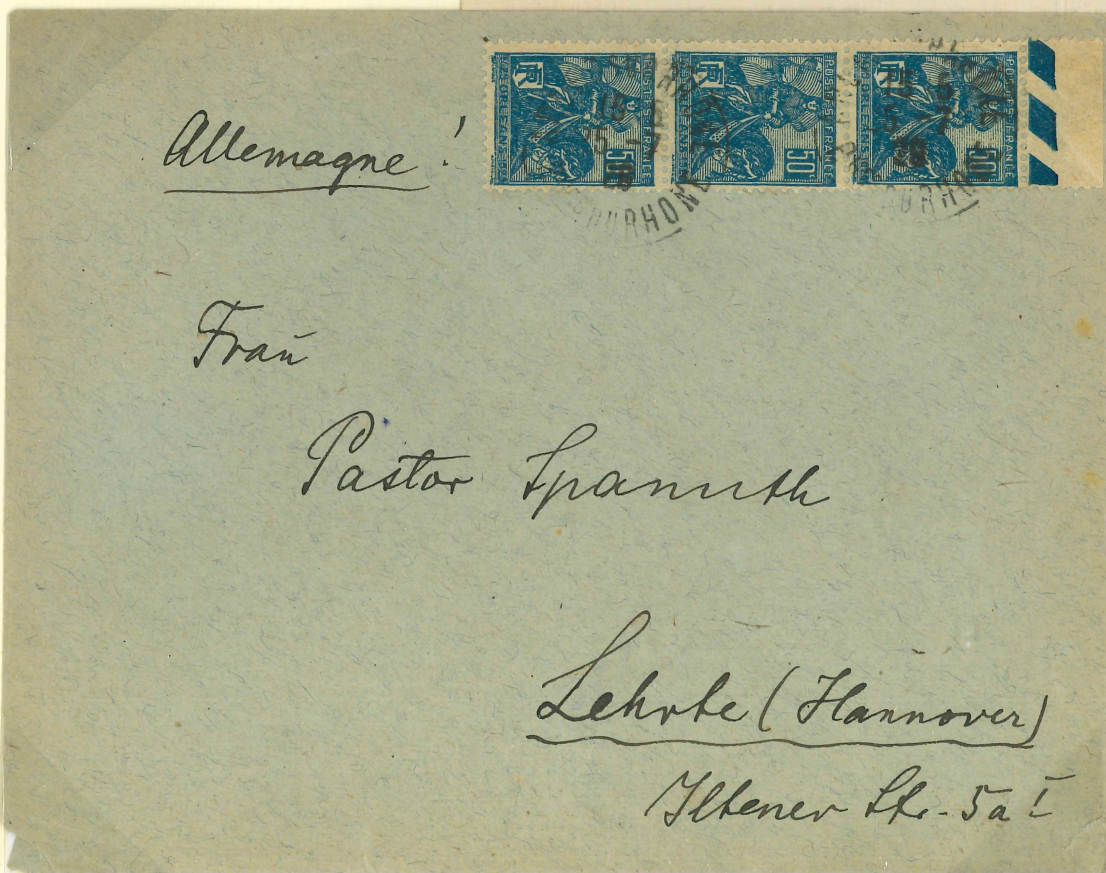 Allemagne!
RF POSTES FRANCE 50
RF 50
RF POSTES FRANCE 50
RHONE
Frau
Pastor Spanuth
Lehrte (Hannover)
Iltener Str. 5a I